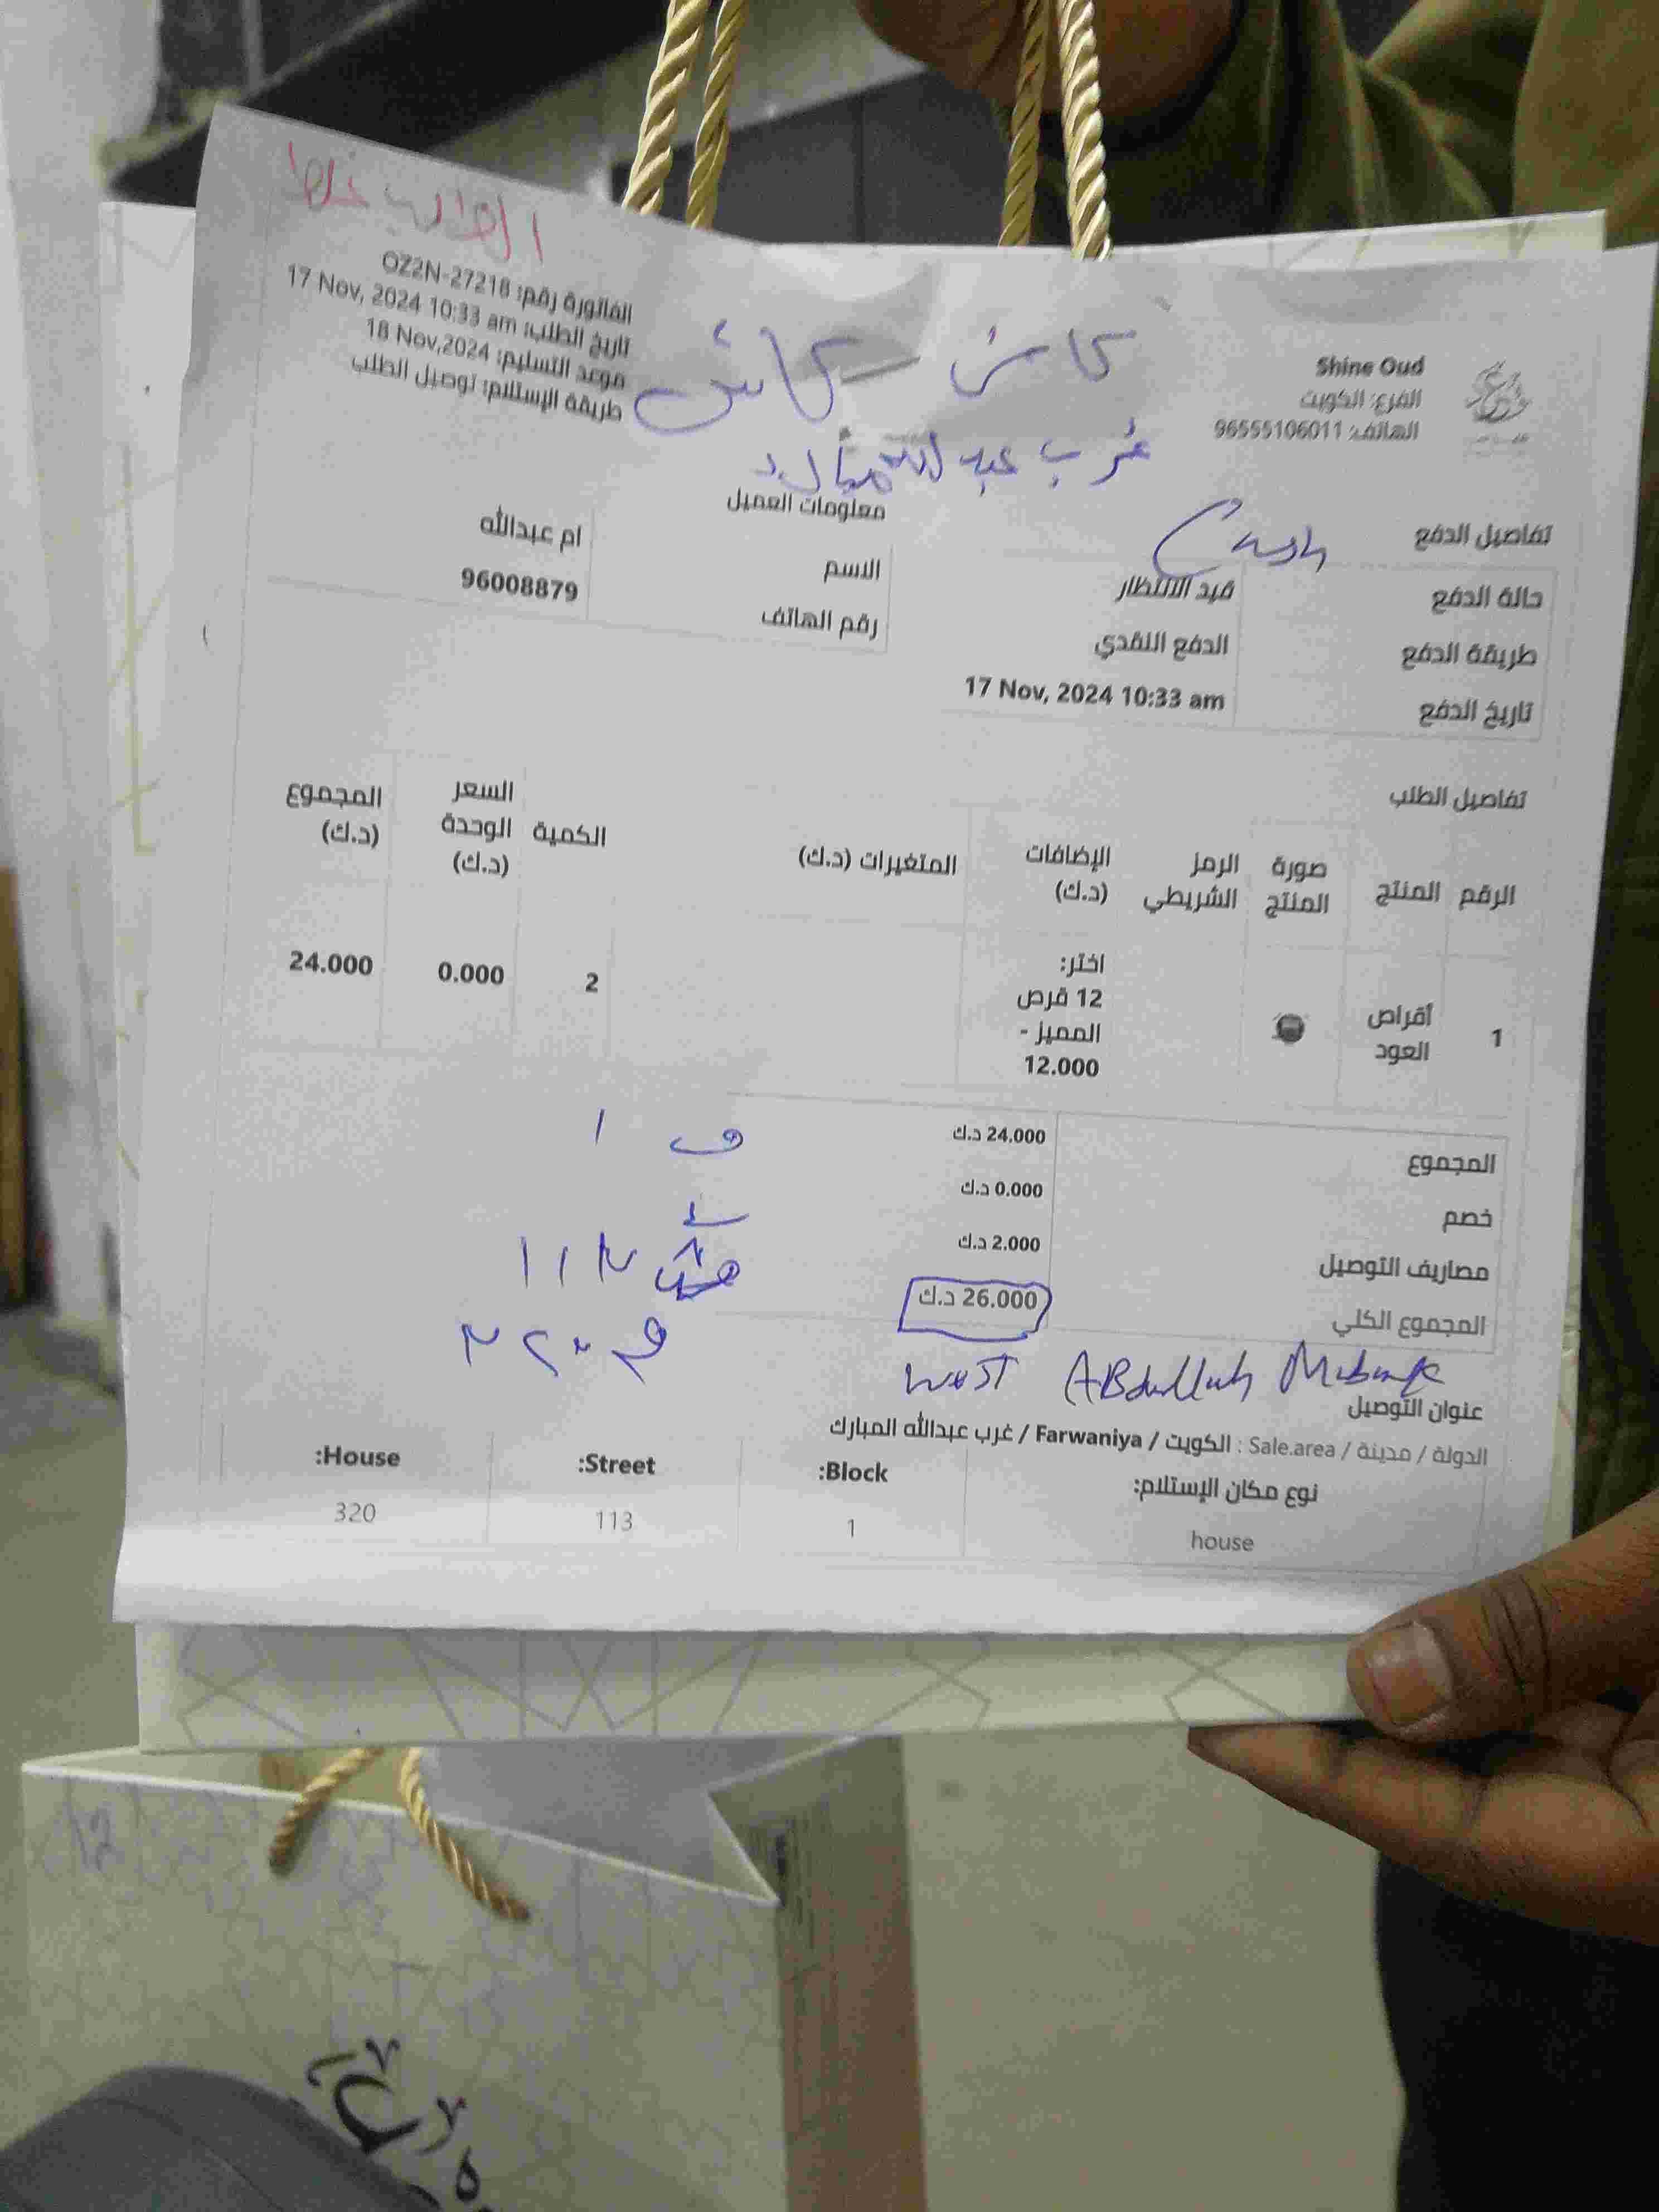 الفاتورة رقم: OZ2N-27218
تاريخ الطلب: 17 Nov, 2024 10:33 am
موعد التسليم: 18 Nov,2024
طريقة الإستلام: توصيل الطلب
Shine Oud
الفرع: الكويت
الهاتف: 96555106011
كاش - كاش
غرب عبدالله مبارك
Cash
تفاصيل الدفع
حالة الدفع قيد الانتظار
طريقة الدفع الدفع النقدي
تاريخ الدفع 17 Nov, 2024 10:33 am
معلومات العميل
الاسم ام عبدالله
رقم الهاتف 96008879
تفاصيل الطلب
الرقم المنتج صورة المنتج الرمز الشريطي الإضافات (د.ك) المتغيرات (د.ك) الكمية السعر الوحدة (د.ك) المجموع (د.ك)
1 أقراص العود اختر: 12 قرص المميز - 12.000 2 0.000 24.000
المجموع 24.000 د.ك
خصم 0.000 د.ك
مصاريف التوصيل 2.000 د.ك
المجموع الكلي 26.000 د.ك
ق ١
West ABdullah Mubarak
عنوان التوصيل
الدولة / مدينة / Sale.area : الكويت / Farwaniya / غرب عبدالله المبارك
نوع مكان الإستلام: Block: Street: House:
house 1 113 320
12